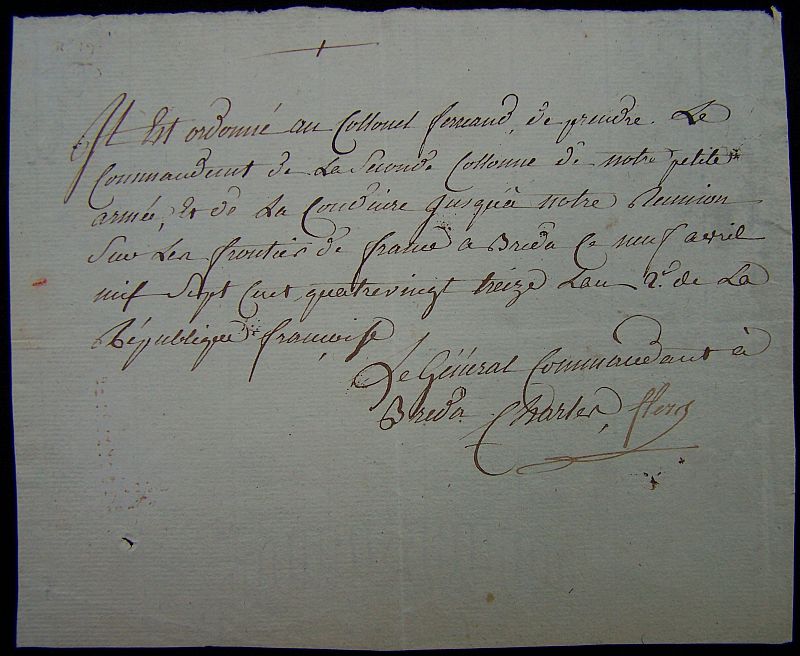 Il Est ordonné au Collonel ferrand, de prendre. Le
Commandement de La Seconde Collonne de notre petite
armée, Et de La Conduire Jusqu'à notre Reunion
Sur Les frontieres de france a Breda Ce neuf avril
mil Sept Cent quatrevingt treize Lan 2e de La
République françoise
Le Général Commandant à
Breda Charles, flers